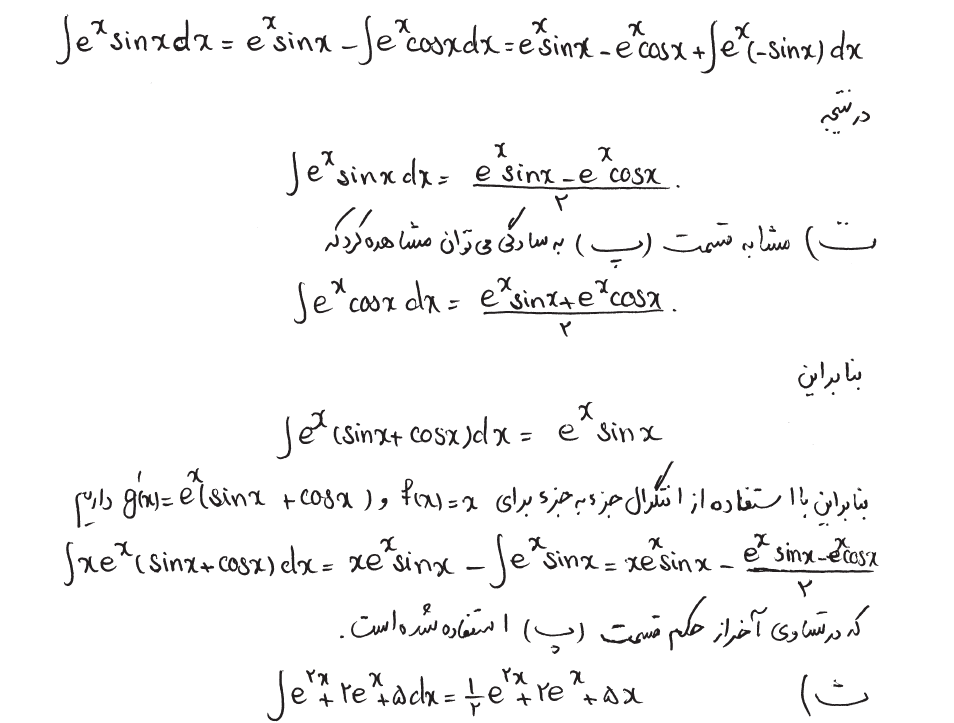 ∫e^x sinx dx = e^x sinx - ∫e^x cosx dx = e^x sinx - e^x cosx + ∫e^x (-sinx) dx
در نتیجه
∫e^x sinx dx = (e^x sinx - e^x cosx)/۲ .
ت) مشابه قسمت (پ) به سادگی می توان مشاهده کرد که
∫e^x cosx dx = (e^x sinx + e^x cosx)/۲ .
بنابراین
∫e^x (sinx + cosx) dx = e^x sinx
بنابراین با استفاده از انتگرال جزء به جزء برای f(x) = x و g'(x) = e^x (sinx + cosx) داریم
∫xe^x (sinx + cosx) dx = xe^x sinx - ∫e^x sinx = xe^x sinx - (e^x sinx - e^x cosx)/۲
که در تساوی آخر از حکم قسمت (پ) استفاده شده است.
ث) ∫e^۲x + ۲e^x + ۵ dx = ۱/۲ e^۲x + ۲e^x + ۵x